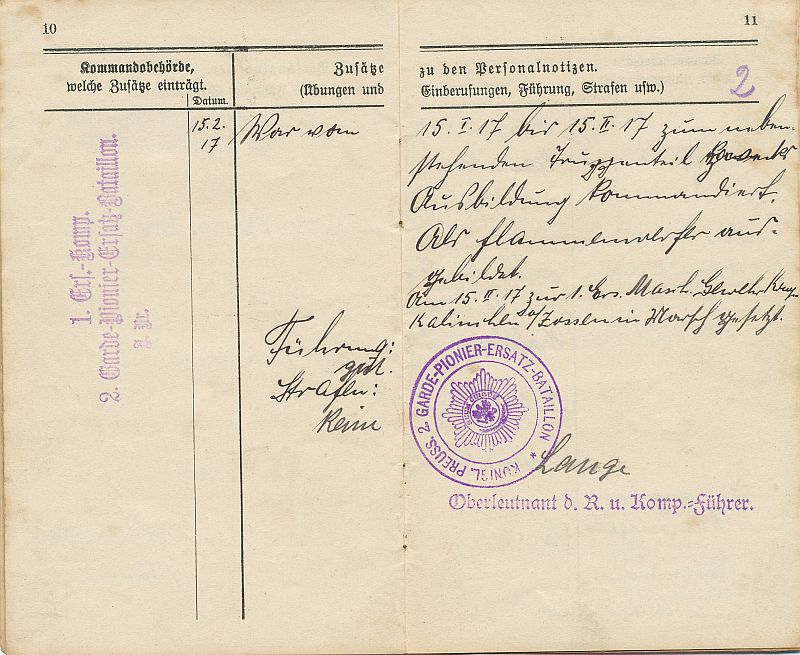 10
Kommandobehörde,
welche Zusätze einträgt.
Datum.
Zusätze
(Übungen und
1. Ers.-Komp.
2. Garde-Pionier-Ersatz-Bataillon.
15.2.
17
War vom
Führung:
gut.
Strafen:
Keine
11
zu den Personalnotizen.
Einberufungen, Führung, Strafen usw.)
2
15. I. 17 bis 15. II. 17 zum neben-
stehenden Truppenteil zwecks
Ausbildung kommandiert.
Als Flammenwerfer aus-
gebildet.
Am 15. II. 17 zur 1. Ers. Masch. Gewehr-Komp.
Kalinchen b/Zossen in Marsch gesetzt.
KÖNIGL. PREUSS. 2. GARDE-PIONIER-ERSATZ-BATAILLON *
SUUM CUIQUE
Lange
Oberleutnant d. R. u. Komp.-Führer.